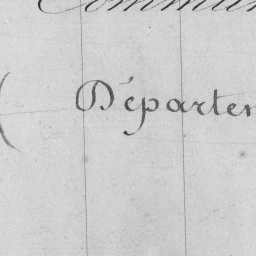 Commun
Départem